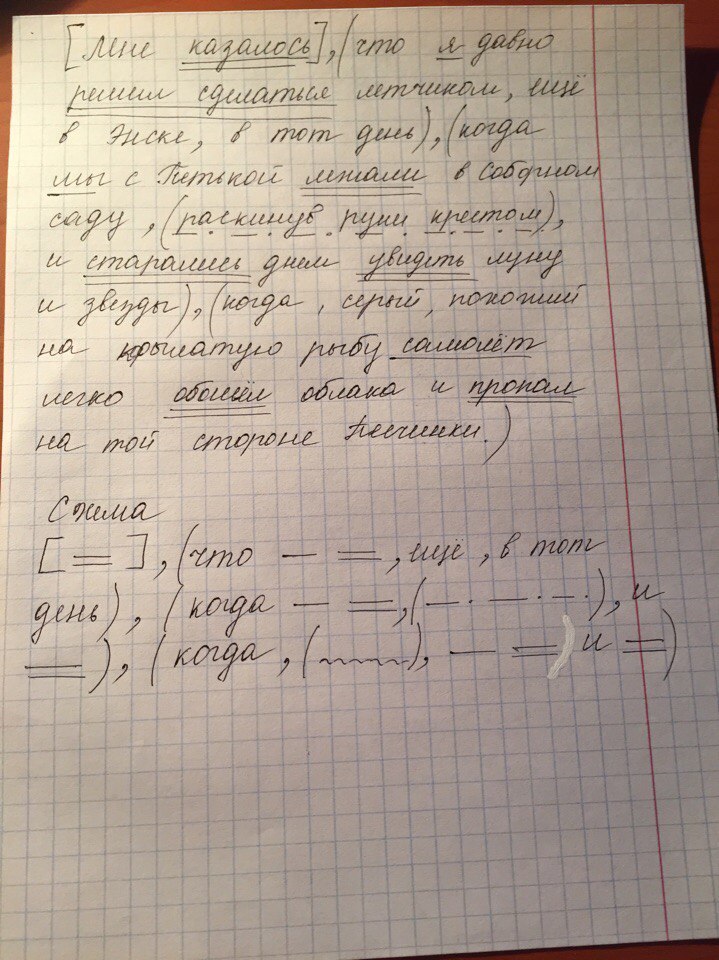 [Мне казалось], (что я давно
решил сделаться летчиком, ещё
в Энске, в тот день), (когда
мы с Петькой лежали в Соборном
саду, (раскинув руки крестом),
и старались днем увидеть луну
и звезды), (когда, серый, похожий
на крылатую рыбу самолёт
легко обошёл облака и пропал
на той стороне Песчинки.)
Схема
[=], (что — =, ещё, в тот
день), (когда — =, (—·—·—·), и
=), (когда, (﹏﹏), — =) и =)